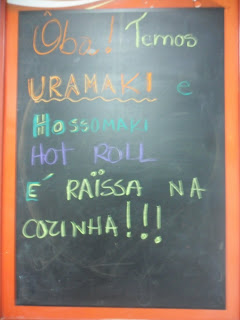 Ôba! Temos
URAMAKI e
HOSSOMAKI
HOT ROLL
É RAÏSSA NA
COZINHA!!!